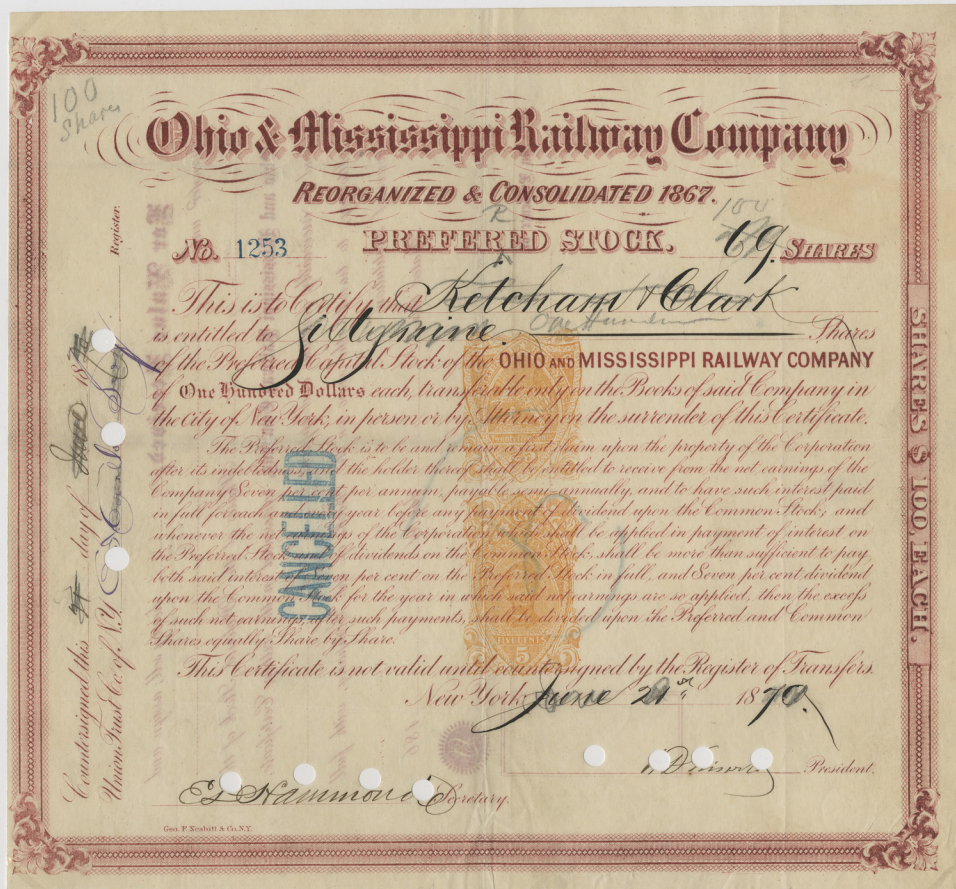 100
Shares
Ohio & Mississippi Railway Company
REORGANIZED & CONSOLIDATED 1867.
R
100
No. 1253 PREFERED STOCK. 69. SHARES
This is to Certify that Ketcham & Clark
is entitled to Sixty nine. One Hundred Shares
of the Preferred Capital Stock of the OHIO AND MISSISSIPPI RAILWAY COMPANY
of One Hundred Dollars each, transferable only on the Books of said Company in
the City of New York, in person or by Attorney on the surrender of this Certificate.
The Preferred Stock is to be and remain a first claim upon the property of the Corporation
after its indebtedness, and the holder thereof shall be entitled to receive from the net earnings of the
Company Seven per cent per annum, payable semi-annually, and to have such interest paid
in full for each and every year before any payment of dividend upon the Common Stock; and
whenever the net earnings of the Corporation which shall be applied in payment of interest on
the Preferred Stock and of dividends on the Common Stock, shall be more than sufficient to pay
both said interest of Seven per cent on the Preferred Stock in full, and Seven per cent dividend
upon the Common Stock for the year in which said net earnings are so applied, then the excess
of such net earnings after such payments, shall be divided upon the Preferred and Common
Shares equally Share by Share.
This Certificate is not valid until countersigned by the Register of Transfers.
New York, June 21st 1870.
President.
E S Hammond Secretary.
Geo. F. Nesbitt & Co. N.Y.
CANCELLED
FIVE CENTS
5
Countersigned this day of June 18
Union Trust Co. of N.Y. Register.
SHARES $100 EACH.